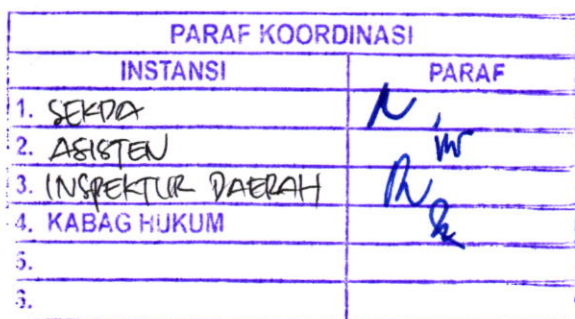 PARAF KOORDINASI
INSTANSI PARAF
1. SEKDA
2. ASISTEN
3. INSPEKTUR DAERAH
4. KABAG HUKUM
5.
6.